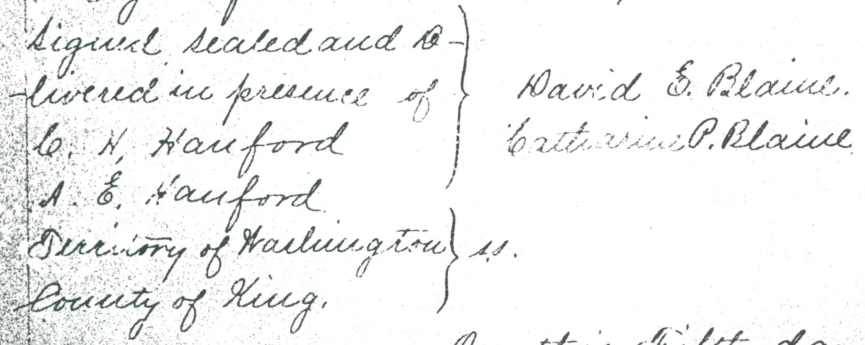 Signed, Sealed and De-
-livered in presence of
C. H. Hanford
A. E. Hanford
David E. Blaine.
Catharine P. Blaine
Territory of Washington } ss.
County of King.